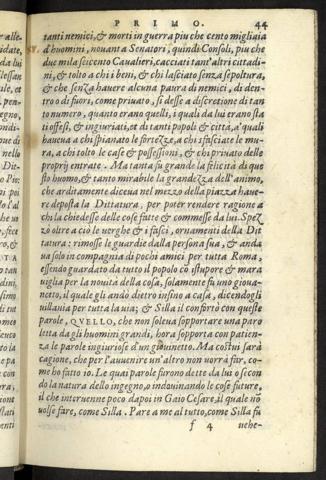 PRIMO. 44
tanti nemici, & morti in guerra piu che cento migliaia
d'huomini, nouanta Senatori, quindi Consoli, piu che
due mila seicento Caualieri, cacciati tant'altri cittadi-
ni, & tolto a chi i beni, & chi lasciato senza sepoltura,
& che senza hauere alcuna paura di nemici, di den-
tro o di fuori, come priuato, si desse a discretione di tan
to numero, quanto erano quelli, i quali da lui erano sta
ti offesi, & ingiuriati, et di tanti popoli & città, a' quali
haueua a chi spianato le fortezze, a chi sfasciate le mu-
ra, a chi tolto le case & possessioni, & chi priuato delle
proprij entrate. Ma tanta fu grande la felicità di que
sto huomo, & tanto mirabile la grandezza dell'animo,
che arditamente diceua nel mezzo della piazza haue-
re deposta la Dittatura, per poter rendere ragione a
chi la chiedesse delle cose fatte & commesse da lui. Spez
zò oltre a ciò le uerghe & i fasci, ornamenti della Dit
tatura: rimosse le guardie dalla persona sua, & anda
ua solo in compagnia di pochi amici per tutta Roma,
essendo guardato da tutto il popolo cō istupore & mara
uiglia per la nouità della cosa, solamente fu uno gioua-
netto, il quale gli andò dietro insino a casa, dicendogli
uillania per tutta la uia; & Silla il confortò con queste
parole, QVELLO, che non soleua sopportare una paro
letta da gli huomini grandi, hora sopporta con patien-
za le parole ingiuriose d'un giouinetto. Ma costui sarà
cagione, che per l'auuenire un'altro non uorrà far, co-
me ho fatto io. Le quai parole furono dette da lui o secon
do la natura dello ingegno, o indouinando le cose future,
il che interuenne poco dapoi in Gaio Cesare, il quale nō
uolse fare, come Silla. Pare a me al tutto, come Silla fu
f 4 uehe-